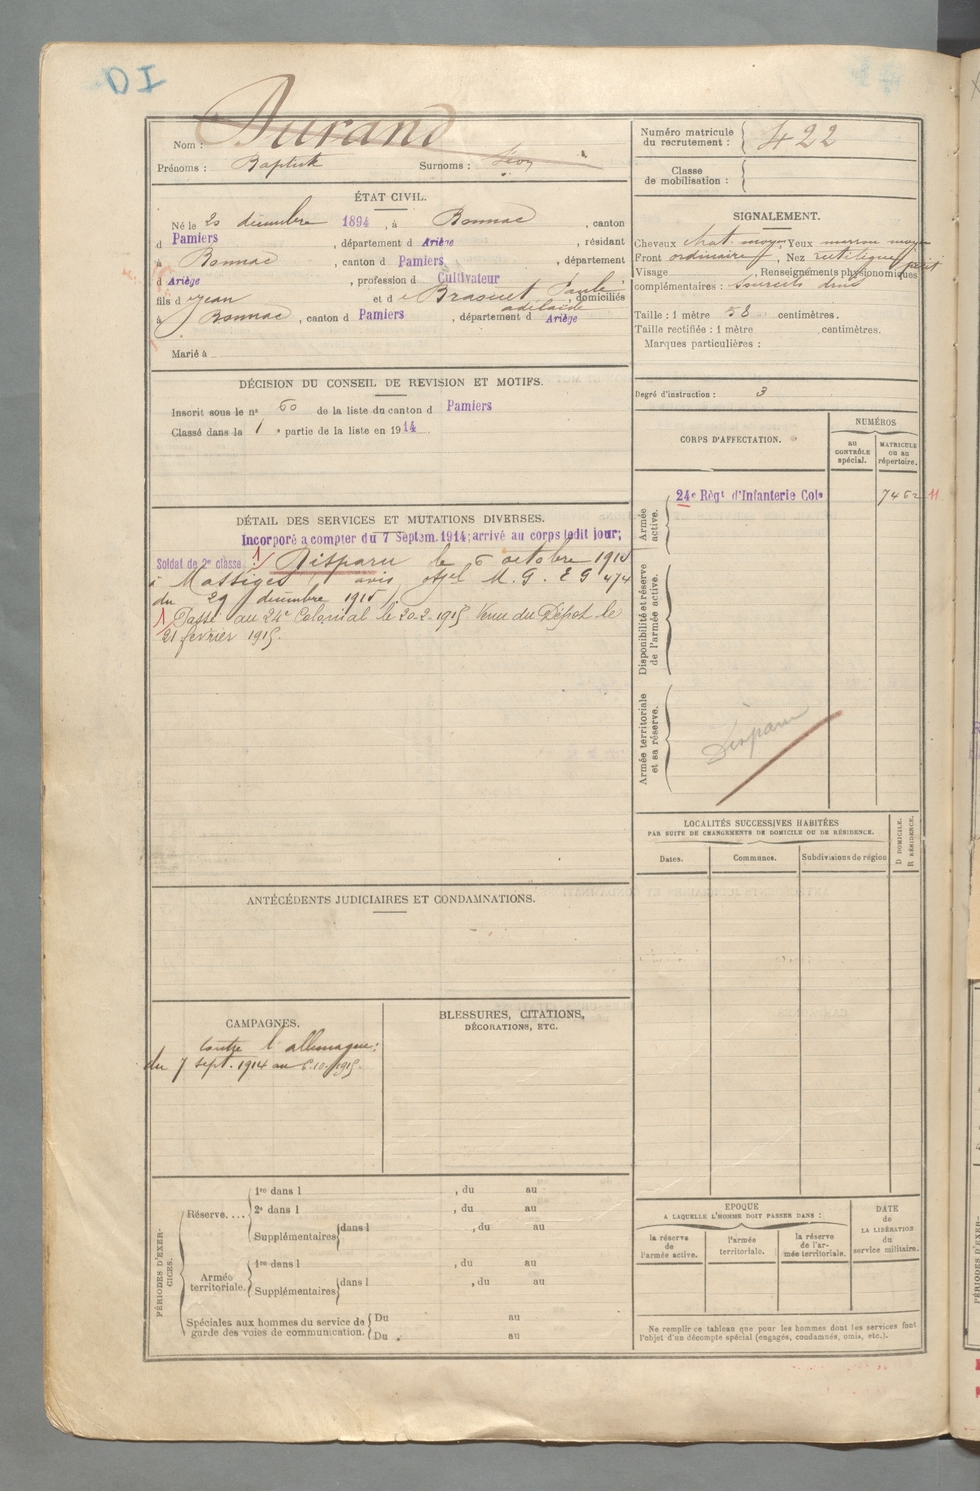 DI
Nom : Durand
Prénoms : Baptiste Surnoms : Léon
Numéro matricule du recrutement : 422
Classe de mobilisation :
ÉTAT CIVIL.
Né le 20 décembre 1894, à Bonnac, canton
d Pamiers, département d Ariège, résidant
à Bonnac, canton d Pamiers, département
d Ariège, profession d Cultivateur
fils d e Jean et d e Brasuet Paule adélaïde, domiciliés
à Bonnac, canton d Pamiers, département d Ariège
Marié à
SIGNALEMENT.
Cheveux chat. moyen, Yeux marron moyen
Front ordinaire, Nez rectiligne petit
Visage , Renseignements physionomiques
complémentaires : Sourcils drus
Taille : 1 mètre 58 centimètres.
Taille rectifiée : 1 mètre centimètres.
Marques particulières :
Degré d'instruction : 3
DÉCISION DU CONSEIL DE REVISION ET MOTIFS.
Inscrit sous le n° 60 de la liste du canton d Pamiers
Classé dans la 1 e partie de la liste en 1914
CORPS D'AFFECTATION.
NUMÉROS
AU CONTRÔLE spécial.
MATRICULE ou au répertoire.
Armée active.
24e Régt d'Infanterie Cole 7462 11
Disponibilité et réserve de l'armée active.
Armée territoriale et sa réserve.
Disparu
DÉTAIL DES SERVICES ET MUTATIONS DIVERSES.
Incorporé a compter du 7 Septem. 1914; arrivé au corps ledit jour;
Soldat de 2e classe : 1/ Disparu le 6 octobre 1915
à Massiges avis offel M. G. E G 474
du 29 décembre 1915
1 Passé au 24e Colonial le 20-2-1915. Venu du Dépôt le
21 février 1915.
LOCALITÉS SUCCESSIVES HABITÉES
PAR SUITE DE CHANGEMENTS DE DOMICILE OU DE RÉSIDENCE.
Dates. Communes. Subdivisions de région
D DOMICILE.
R RÉSIDENCE.
ANTÉCÉDENTS JUDICIAIRES ET CONDAMNATIONS.
CAMPAGNES.
Contre l'allemagne:
du 7 Sept. 1914 au 6.10.1915.
BLESSURES, CITATIONS,
DÉCORATIONS, ETC.
PÉRIODES D'EXERCICES.
Réserve....
1re dans l , du au
2e dans l , du au
Supplémentaires dans l , du au
Armée territoriale.
1re dans l , du au
Supplémentaires dans l , du au
Spéciales aux hommes du service de garde des voies de communication.
Du au
Du au
EPOQUE
A LAQUELLE L'HOMME DOIT PASSER DANS :
la réserve de l'armée active.
l'armée territoriale.
la réserve de l'armée territoriale.
DATE de LA LIBÉRATION du service militaire.
Ne remplir ce tableau que pour les hommes dont les services font
l'objet d'un décompte spécial (engagés, condamnés, omis, etc.).